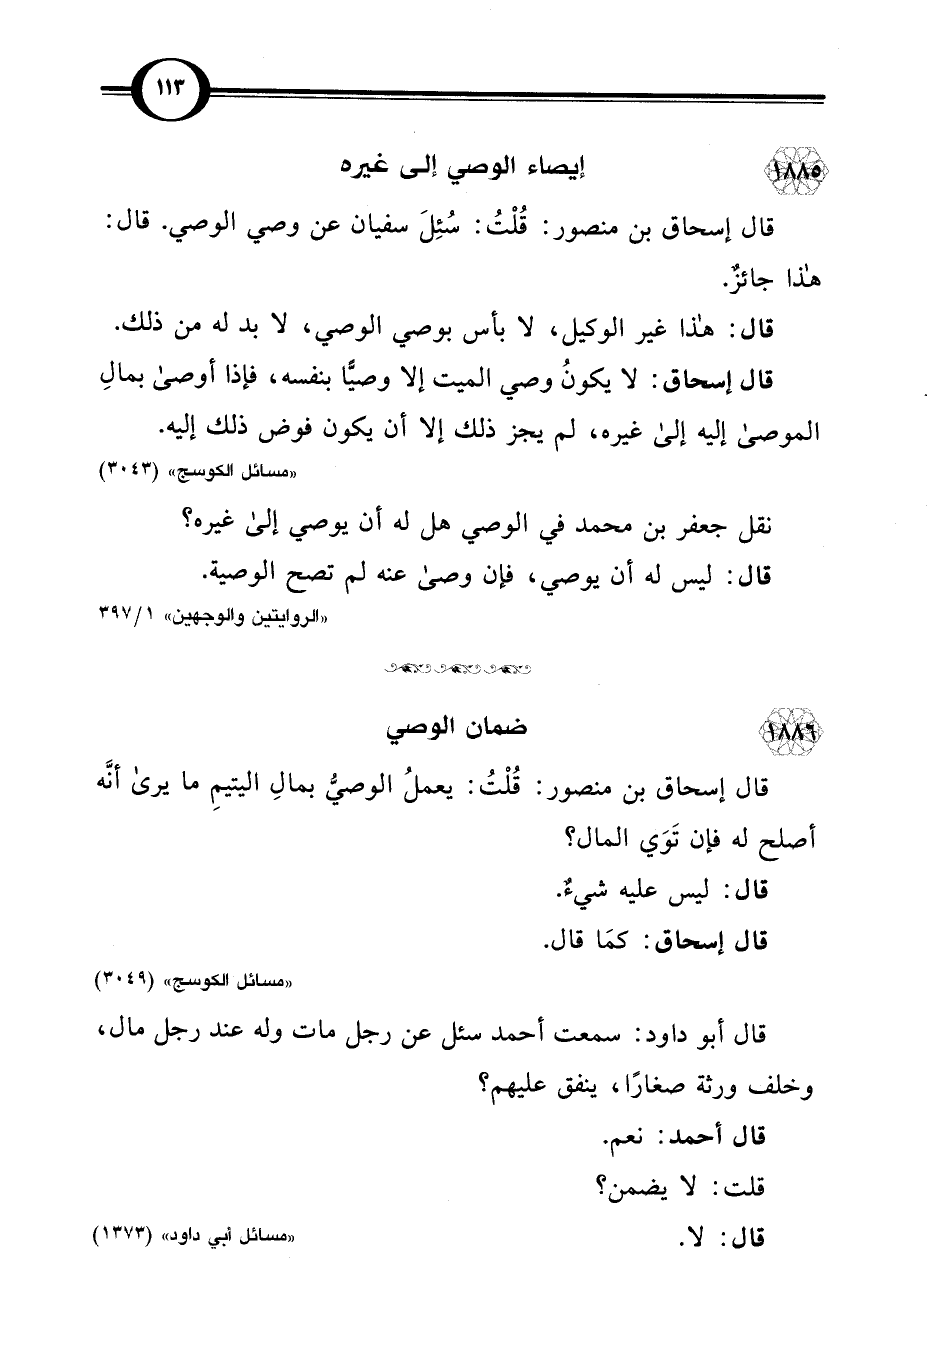 ١١٣
١٨٨٥
إيصاء الوصي إلى غيره
قال إسحاق بن منصور: قُلْتُ: سُئِلَ سفيان عن وصي الوصي. قال:
هذا جائزٌ.
قال: هذا غير الوكيل، لا بأس بوصي الوصي، لا بد له من ذلك.
قال إسحاق: لا يكونُ وصي الميت إلا وصيًّا بنفسه، فإذا أوصىٰ بمالِ
الموصىٰ إليه إلىٰ غيره، لم يجز ذلك إلا أن يكون فوض ذلك إليه.
«مسائل الكوسج» (٣٠٤٣)
نقل جعفر بن محمد في الوصي هل له أن يوصي إلىٰ غيره؟
قال: ليس له أن يوصي، فإن وصىٰ عنه لم تصح الوصية.
«الروايتين والوجهين» ٣٩٧/١
١٨٨٦
ضمان الوصي
قال إسحاق بن منصور: قُلْتُ: يعملُ الوصيُّ بمالِ اليتيمِ ما يرىٰ أنَّه
أصلح له فإن تَوَي المال؟
قال: ليس عليه شيءٌ.
قال إسحاق: كمَا قال.
«مسائل الكوسج» (٣٠٤٩)
قال أبو داود: سمعت أحمد سئل عن رجل مات وله عند رجل مال،
وخلف ورثة صغارًا، ينفق عليهم؟
قال أحمد: نعم.
قلت: لا يضمن؟
قال: لا.
«مسائل أبي داود» (١٣٧٣)